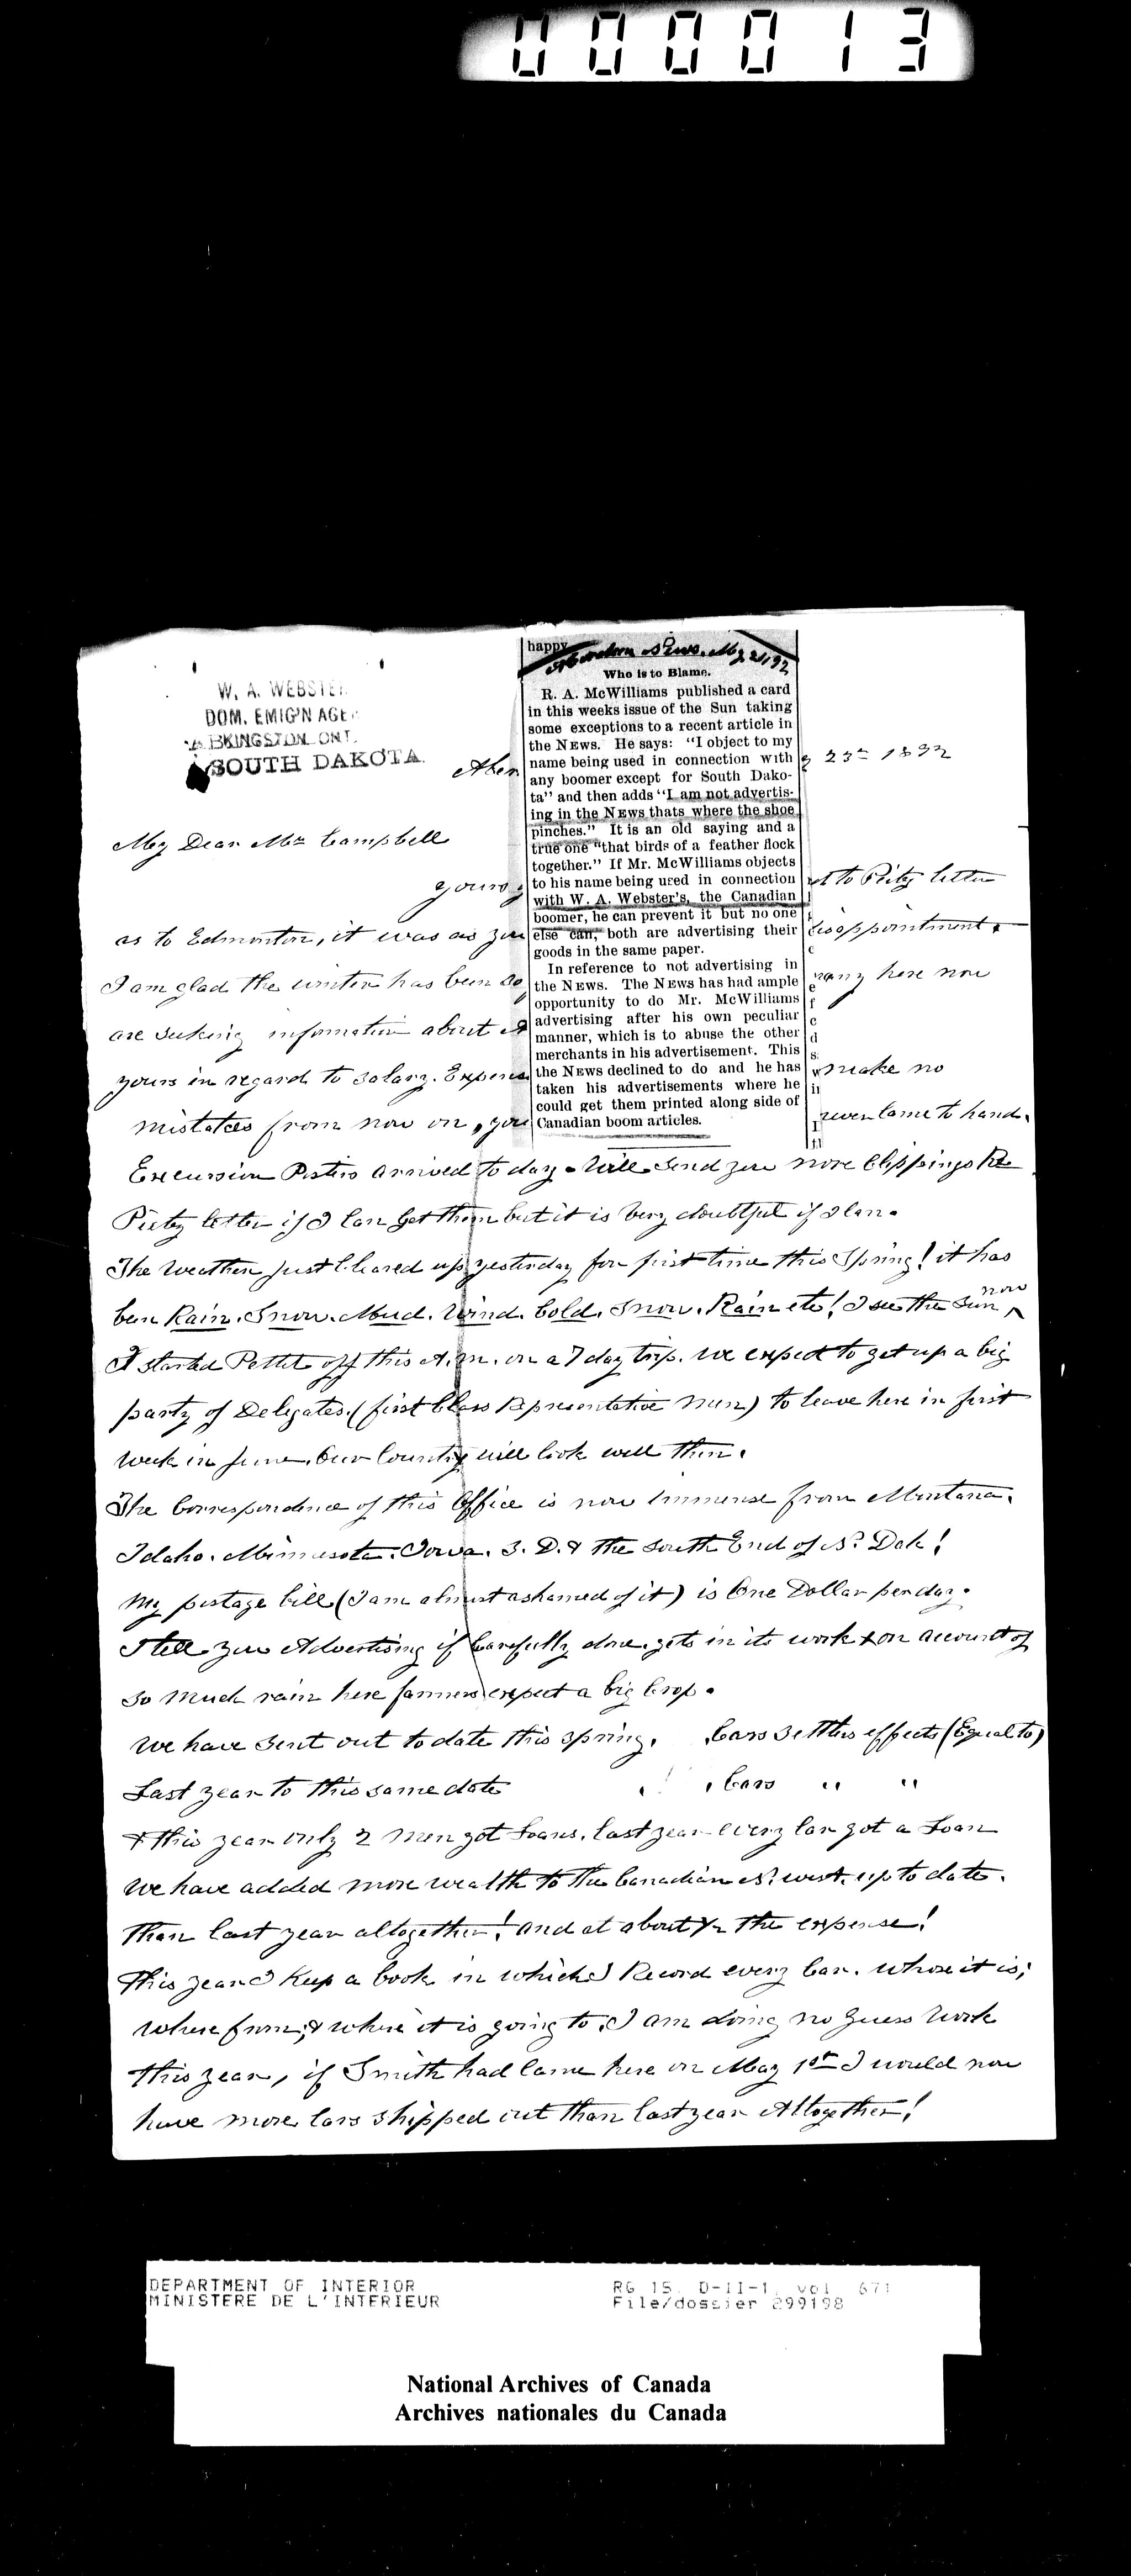 000013
W. A. WEBSTER
DOM. EMIG'N AGE
KINGSTON ONT.
SOUTH DAKOTA.
Aber
23rd 1892
happy
Aberdeen News. May 21, 92
Who is to Blame.
R. A. McWilliams published a card
in this weeks issue of the Sun taking
some exceptions to a recent article in
the NEWS. He says: "I object to my
name being used in connection with
any boomer except for South Dako-
ta" and then adds "I am not advertis-
ing in the NEWS thats where the shoe
pinches." It is an old saying and a
true one "that birds of a feather flock
together." If Mr. McWilliams objects
to his name being used in connection
with W. A. Webster's, the Canadian
boomer, he can prevent it but no one
else can, both are advertising their
goods in the same paper.
In reference to not advertising in
the NEWS. The NEWS has had ample
opportunity to do Mr. McWilliams
advertising after his own peculiar
manner, which is to abuse the other
merchants in his advertisement. This
the NEWS declined to do and he has
taken his advertisements where he
could get them printed along side of
Canadian boom articles.
My Dear Mr Campbell
yours to Piety letter
as to Edmonton, it was as you disappointment.
I am glad the winter has been so many here now
are seeking information about
yours in regard to Salary. Expense make no
mistakes from now on, you ever came to hand.
Excursion Posters arrived to day. Will send you more Clippings Re
Piety letter if I Can Get them but it is Very doubtful if I Can.
The Weather Just Cleared up yesterday for first time this Spring! it has
been Rain. Snow. Mud. Wind. Cold. Snow. Rain etc! I see the Sun now
I started Pettit off this A.m. on a 7 day trip. We expect to get up a big
party of Delegates. (first Class Representative men) to leave here in first
week in June. Our Country will look well then.
The Correspondence of this Office is now immense from Montana.
Idaho. Minnesota. Iowa. S. D. & the South End of N. Dak!
My postage bill (I am almost ashamed of it) is One Dollar per day.
I tell you Advertising if Carefully done, gets in its work & on account of
so much rain here farmers expect a big Crop.
We have sent out to date this spring. Cars Settlers effects (Equal to)
Last year to this same date Cars " "
& this year only 2 men got Loans, last year every Car got a Loan
We have added more wealth to the Canadian N. west. up to date.
than last year altogether! and at about ½ the expense!
This year I Keep a book in which I Record every Car. whose it is;
where from; & where it is going to. I am doing no Guess Work
this year, if Smith had Came here on May 1st I would now
have more Cars shipped out than last year Altogether!
DEPARTMENT OF INTERIOR
MINISTERE DE L'INTERIEUR
RG 15, D-II-1, vol. 671
File/dossier 299198
National Archives of Canada
Archives nationales du Canada